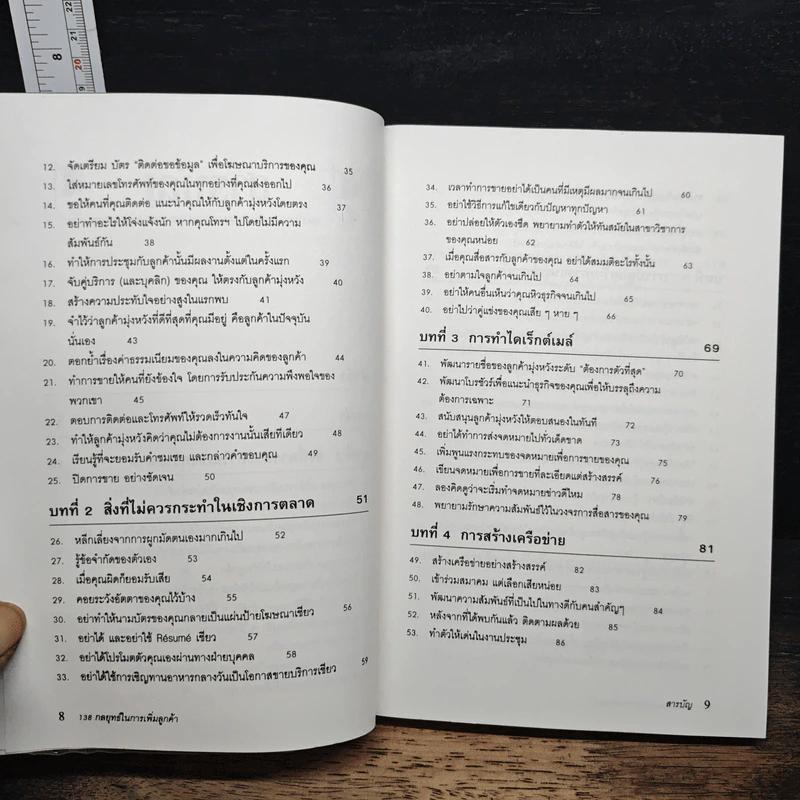 8
20
9
12. จัดเตรียม บัตร "ติดต่อขอข้อมูล" เพื่อโฆษณาบริการของคุณ 35
13. ใส่หมายเลขโทรศัพท์ของคุณในทุกอย่างที่คุณส่งออกไป 36
14. ขอให้คนที่คุณติดต่อ แนะนำคุณให้กับลูกค้ามุ่งหวังโดยตรง 37
15. อย่าทำอะไรให้โจ่งแจ้งนัก หากคุณโทรฯ ไปโดยไม่มีความ
สัมพันธ์กัน 38
16. ทำให้การประชุมกับลูกค้านั้นมีผลงานตั้งแต่ในครั้งแรก 39
17. จับคู่บริการ (และบุคลิก) ของคุณ ให้ตรงกับลูกค้ามุ่งหวัง 40
18. สร้างความประทับใจอย่างสูงในแรกพบ 41
19. จำไว้ว่าลูกค้ามุ่งหวังที่ดีที่สุดที่คุณมีอยู่ คือลูกค้าในปัจจุบัน
นั่นเอง 43
20. ตอกย้ำเรื่องค่าธรรมเนียมของคุณลงในความคิดของลูกค้า 44
21. ทำการขายให้คนที่ยังข้องใจ โดยการรับประกันความพึงพอใจของ
พวกเขา 45
22. ตอบการติดต่อและโทรศัพท์ให้รวดเร็วทันใจ 47
23. ทำให้ลูกค้ามุ่งหวังคิดว่าคุณไม่ต้องการงานนั้นเสียทีเดียว 48
24. เรียนรู้ที่จะยอมรับคำชมเชย และกล่าวคำขอบคุณ 49
25. ปิดการขาย อย่างชัดเจน 50
บทที่ 2 สิ่งที่ไม่ควรกระทำในเชิงการตลาด 51
26. หลีกเลี่ยงจากการผูกมัดตนเองมากเกินไป 52
27. รู้ข้อจำกัดของตัวเอง 53
28. เมื่อคุณผิดก็ยอมรับเสีย 54
29. คอยระวังอัตตาของคุณไว้บ้าง 55
30. อย่าทำให้นามบัตรของคุณกลายเป็นแผ่นป้ายโฆษณาเชียว 56
31. อย่าได้ และอย่าใช้ Résumé เชียว 57
32. อย่าได้โปรโมตตัวคุณเองผ่านทางฝ่ายบุคคล 58
33. อย่าได้ใช้การเชิญทานอาหารกลางวันเป็นโอกาสขายบริการเชียว 59
8 138 กลยุทธ์ในการเพิ่มลูกค้า
34. เวลาทำการขายอย่าได้เป็นคนที่มีเหตุมีผลมากจนเกินไป 60
35. อย่าใช้วิธีการแก้ไขเดียวกับปัญหาทุกปัญหา 61
36. อย่าปล่อยให้ตัวเองชืด พยายามทำตัวให้ทันสมัยในสาขาวิชาการ
ของคุณหน่อย 62
37. เมื่อคุณสื่อสารกับลูกค้าของคุณ อย่าได้สมมติอะไรทั้งนั้น 63
38. อย่าตามใจลูกค้าจนเกินไป 64
39. อย่าให้คนอื่นเห็นว่าคุณหิวธุรกิจจนเกินไป 65
40. อย่าไปว่าคู่แข่งของคุณเสีย ๆ หาย ๆ 66
บทที่ 3 การทำไดเร็กต์เมล์ 69
41. พัฒนารายชื่อของลูกค้ามุ่งหวังระดับ "ต้องการตัวที่สุด" 70
42. พัฒนาโบรชัวร์เพื่อแนะนำธุรกิจของคุณเพื่อให้บรรลุถึงความ
ต้องการเฉพาะ 71
43. สนับสนุนลูกค้ามุ่งหวังให้ตอบสนองในทันที 72
44. อย่าได้ทำการส่งจดหมายไปทั่วเด็ดขาด 73
45. เพิ่มพูนแรงกระทบของจดหมายเพื่อการขายของคุณ 75
46. เขียนจดหมายเพื่อการขายที่ละเอียดแต่สร้างสรรค์ 76
47. ลองคิดดูว่าจะเริ่มทำจดหมายข่าวดีไหม 78
48. พยายามรักษาความสัมพันธ์ไว้ในวงจรการสื่อสารของคุณ 79
บทที่ 4 การสร้างเครือข่าย 81
49. สร้างเครือข่ายอย่างสร้างสรรค์ 82
50. เข้าร่วมสมาคม แต่เลือกเสียหน่อย 83
51. พัฒนาความสัมพันธ์ที่เป็นไปในทางดีกับคนสำคัญๆ 84
52. หลังจากที่ได้พบกันแล้ว ติดตามผลด้วย 85
53. ทำตัวให้เด่นในงานประชุม 86
สารบัญ 9